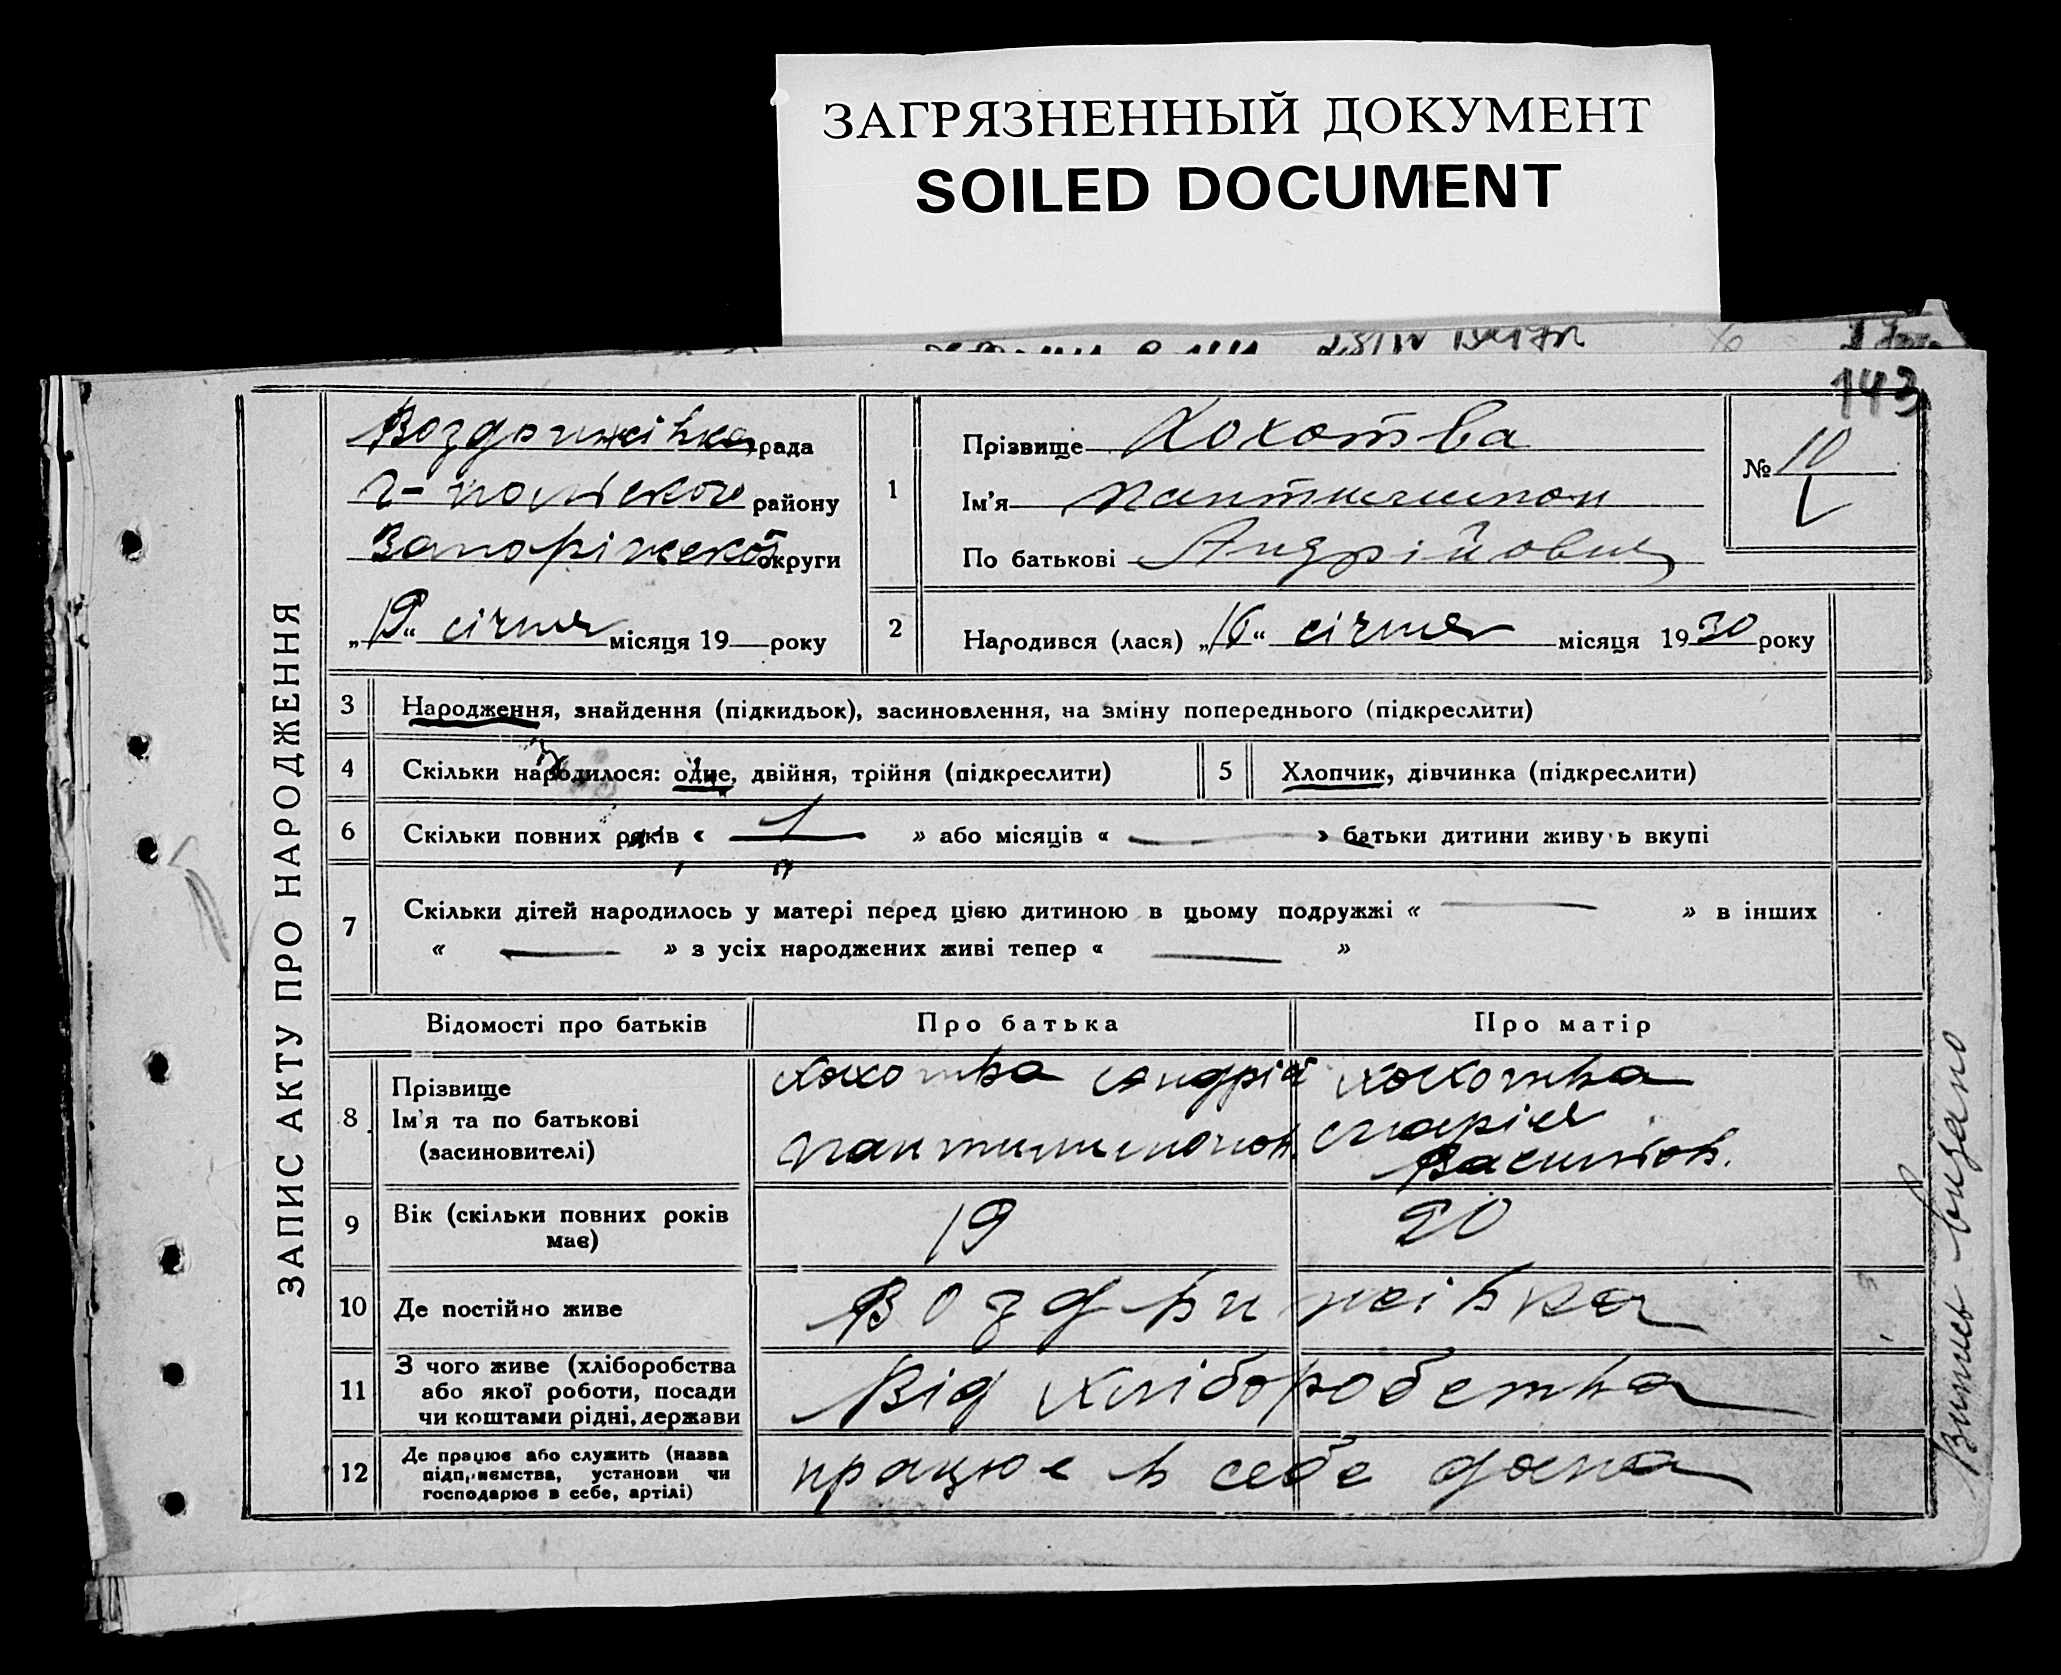 ЗАГРЯЗНЕННЫЙ ДОКУМЕНТ
SOILED DOCUMENT
143
ЗАПИС АКТУ ПРО НАРОДЖЕННЯ
Воздвижівка рада
району
Запоріжської округи
„19“ січня місяця 19 року
1
Прізвище Хохотва
Ім'я Пантилимон
По батькові Андрійович
№ 10
2
Народився (лася) „16“ січня місяця 1930 року
3 Народження, знайдення (підкидьок), засиновлення, на зміну попереднього (підкреслити)
4 Скільки народилося: одне, двійня, трійня (підкреслити)
5 Хлопчик, дівчинка (підкреслити)
6 Скільки повних років « 1 » або місяців « » батьки дитини живуть вкупі
7 Скільки дітей народилось у матері перед цією дитиною в цьому подружжі « » в інших
« » з усіх народжених живі тепер « »
Відомості про батьків Про батька Про матір
8 Прізвище
Ім'я та по батькові
(засиновителі)
Хохотва Андрій
Пантилимонов.
Хохотва
Марія
Василів.
9 Вік (скільки повних років
має)
19 20
10 Де постійно живе Воздвижівка
11 З чого живе (хліборобства
або якої роботи, посади
чи коштами рідні, держави
Від хліборобства
12 Де працює або служить (назва
підприємства, установи чи
господарює в себе, артілі)
працює в себе дома
Випись видано